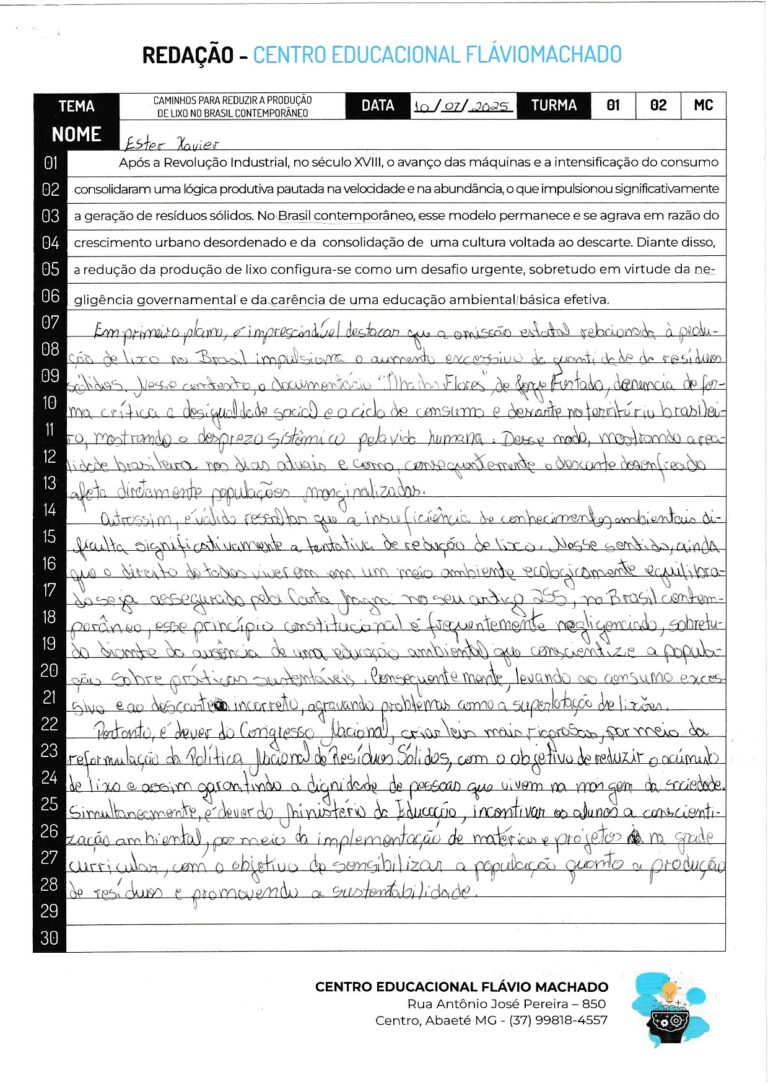 REDAÇÃO - CENTRO EDUCACIONAL FLÁVIOMACHADO
TEMA CAMINHOS PARA REDUZIR A PRODUÇÃO DE LIXO NO BRASIL CONTEMPORÂNEO DATA 10/07/2025 TURMA 01 02 MC
NOME Ester Xavier
01 Após a Revolução Industrial, no século XVIII, o avanço das máquinas e a intensificação do consumo
02 consolidaram uma lógica produtiva pautada na velocidade e na abundância, o que impulsionou significativamente
03 a geração de resíduos sólidos. No Brasil contemporâneo, esse modelo permanece e se agrava em razão do
04 crescimento urbano desordenado e da consolidação de uma cultura voltada ao descarte. Diante disso,
05 a redução da produção de lixo configura-se como um desafio urgente, sobretudo em virtude da ne-
06 gligência governamental e da carência de uma educação ambiental básica efetiva.
07 Em primeiro plano, é imprescindível destacar que a omissão estatal relacionada à produ-
08 ção de lixo no Brasil impulsiona o aumento excessivo da quantidade de resíduos
09 sólidos. Nesse contexto, o documentário "Ilha das Flores", de Jorge Furtado, denuncia de for-
10 ma crítica a desigualdade social e o ciclo de consumo e descarte no território brasilei-
11 ro, mostrando o desprezo sistêmico pela vida humana. Desse modo, mostrando a rea-
12 lidade brasileira nos dias atuais e como, consequentemente o descarte desenfreado
13 afeta diretamente populações marginalizadas.
14 Outrossim, é válido ressaltar que a insuficiência de conhecimentos ambientais di-
15 ficulta significativamente a tentativa de redução de lixo. Nesse sentido, ainda
16 que o direito de todos viverem em um meio ambiente ecologicamente equilibra-
17 do seja assegurado pela Carta Magna no seu artigo 255, no Brasil contem-
18 porâneo, esse princípio constitucional é frequentemente negligenciado, sobretu-
19 do diante da ausência de uma educação ambiental que conscientize a popula-
20 ção sobre práticas sustentáveis. Consequentemente, levando ao consumo exces-
21 sivo e ao descarte incorreto, agravando problemas como a superlotação de lixões.
22 Portanto, é dever do Congresso Nacional, criar leis mais rigorosas, por meio da
23 reformulação da Política Nacional de Resíduos Sólidos, com o objetivo de reduzir o acúmulo
24 de lixo e assim garantindo a dignidade de pessoas que vivem na margem da sociedade.
25 Simultaneamente, é dever do Ministério da Educação, incentivar os alunos a conscienti-
26 zação ambiental, por meio da implementação de matérias e projetos na grade
27 curricular, com o objetivo de sensibilizar a população quanto a produção
28 de resíduos e promovendo a sustentabilidade.
29
30
CENTRO EDUCACIONAL FLÁVIO MACHADO
Rua Antônio José Pereira – 850
Centro, Abaeté MG - (37) 99818-4557